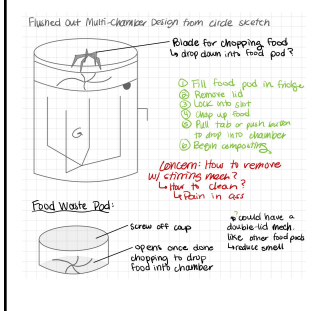 Flushed Out Multi-Chamber Design from circle sketch
Blade for chopping food
↳ drop down into food pod?
① Fill food pod in fridge
② Remove lid
③ Lock into slot
④ Chop up food
⑤ Pull tab or push button
to drop into chamber
⑥ Begin composting
G
Concern: How to remove
w/ stirring mech?
↳ How to clean?
↳ Pain in ass
Food Waste Pod:
Screw off cap
opens once done
chopping to drop
food into chamber
could have a
double-lid mech.
like other food pods
↳ reduce smell